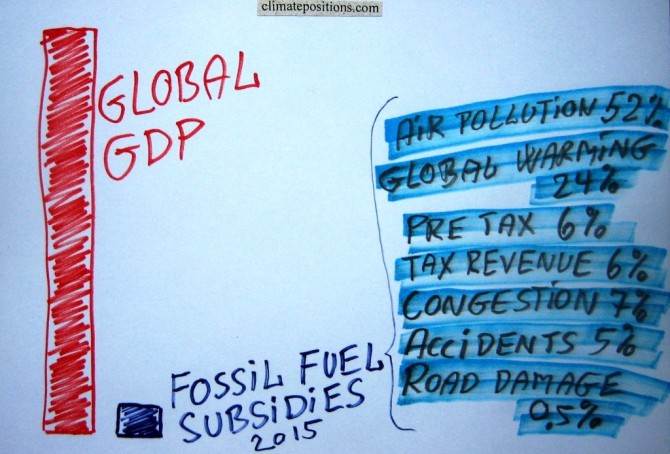 climatepositions.com
GLOBAL
GDP
AIR POLLUTION 52%
GLOBAL WARMING
24%
PRE TAX 6%
TAX REVENUE 6%
CONGESTION 7%
ACCIDENTS 5%
ROAD DAMAGE
0.5%
FOSSIL FUEL
SUBSIDIES
2015